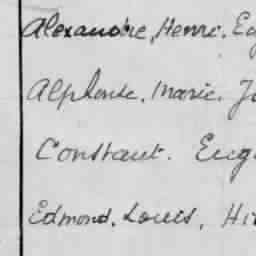 Alexandre, Henri, E
Alphonse, Marie, J
Constant. Eug
Edmond, Louis, Hi